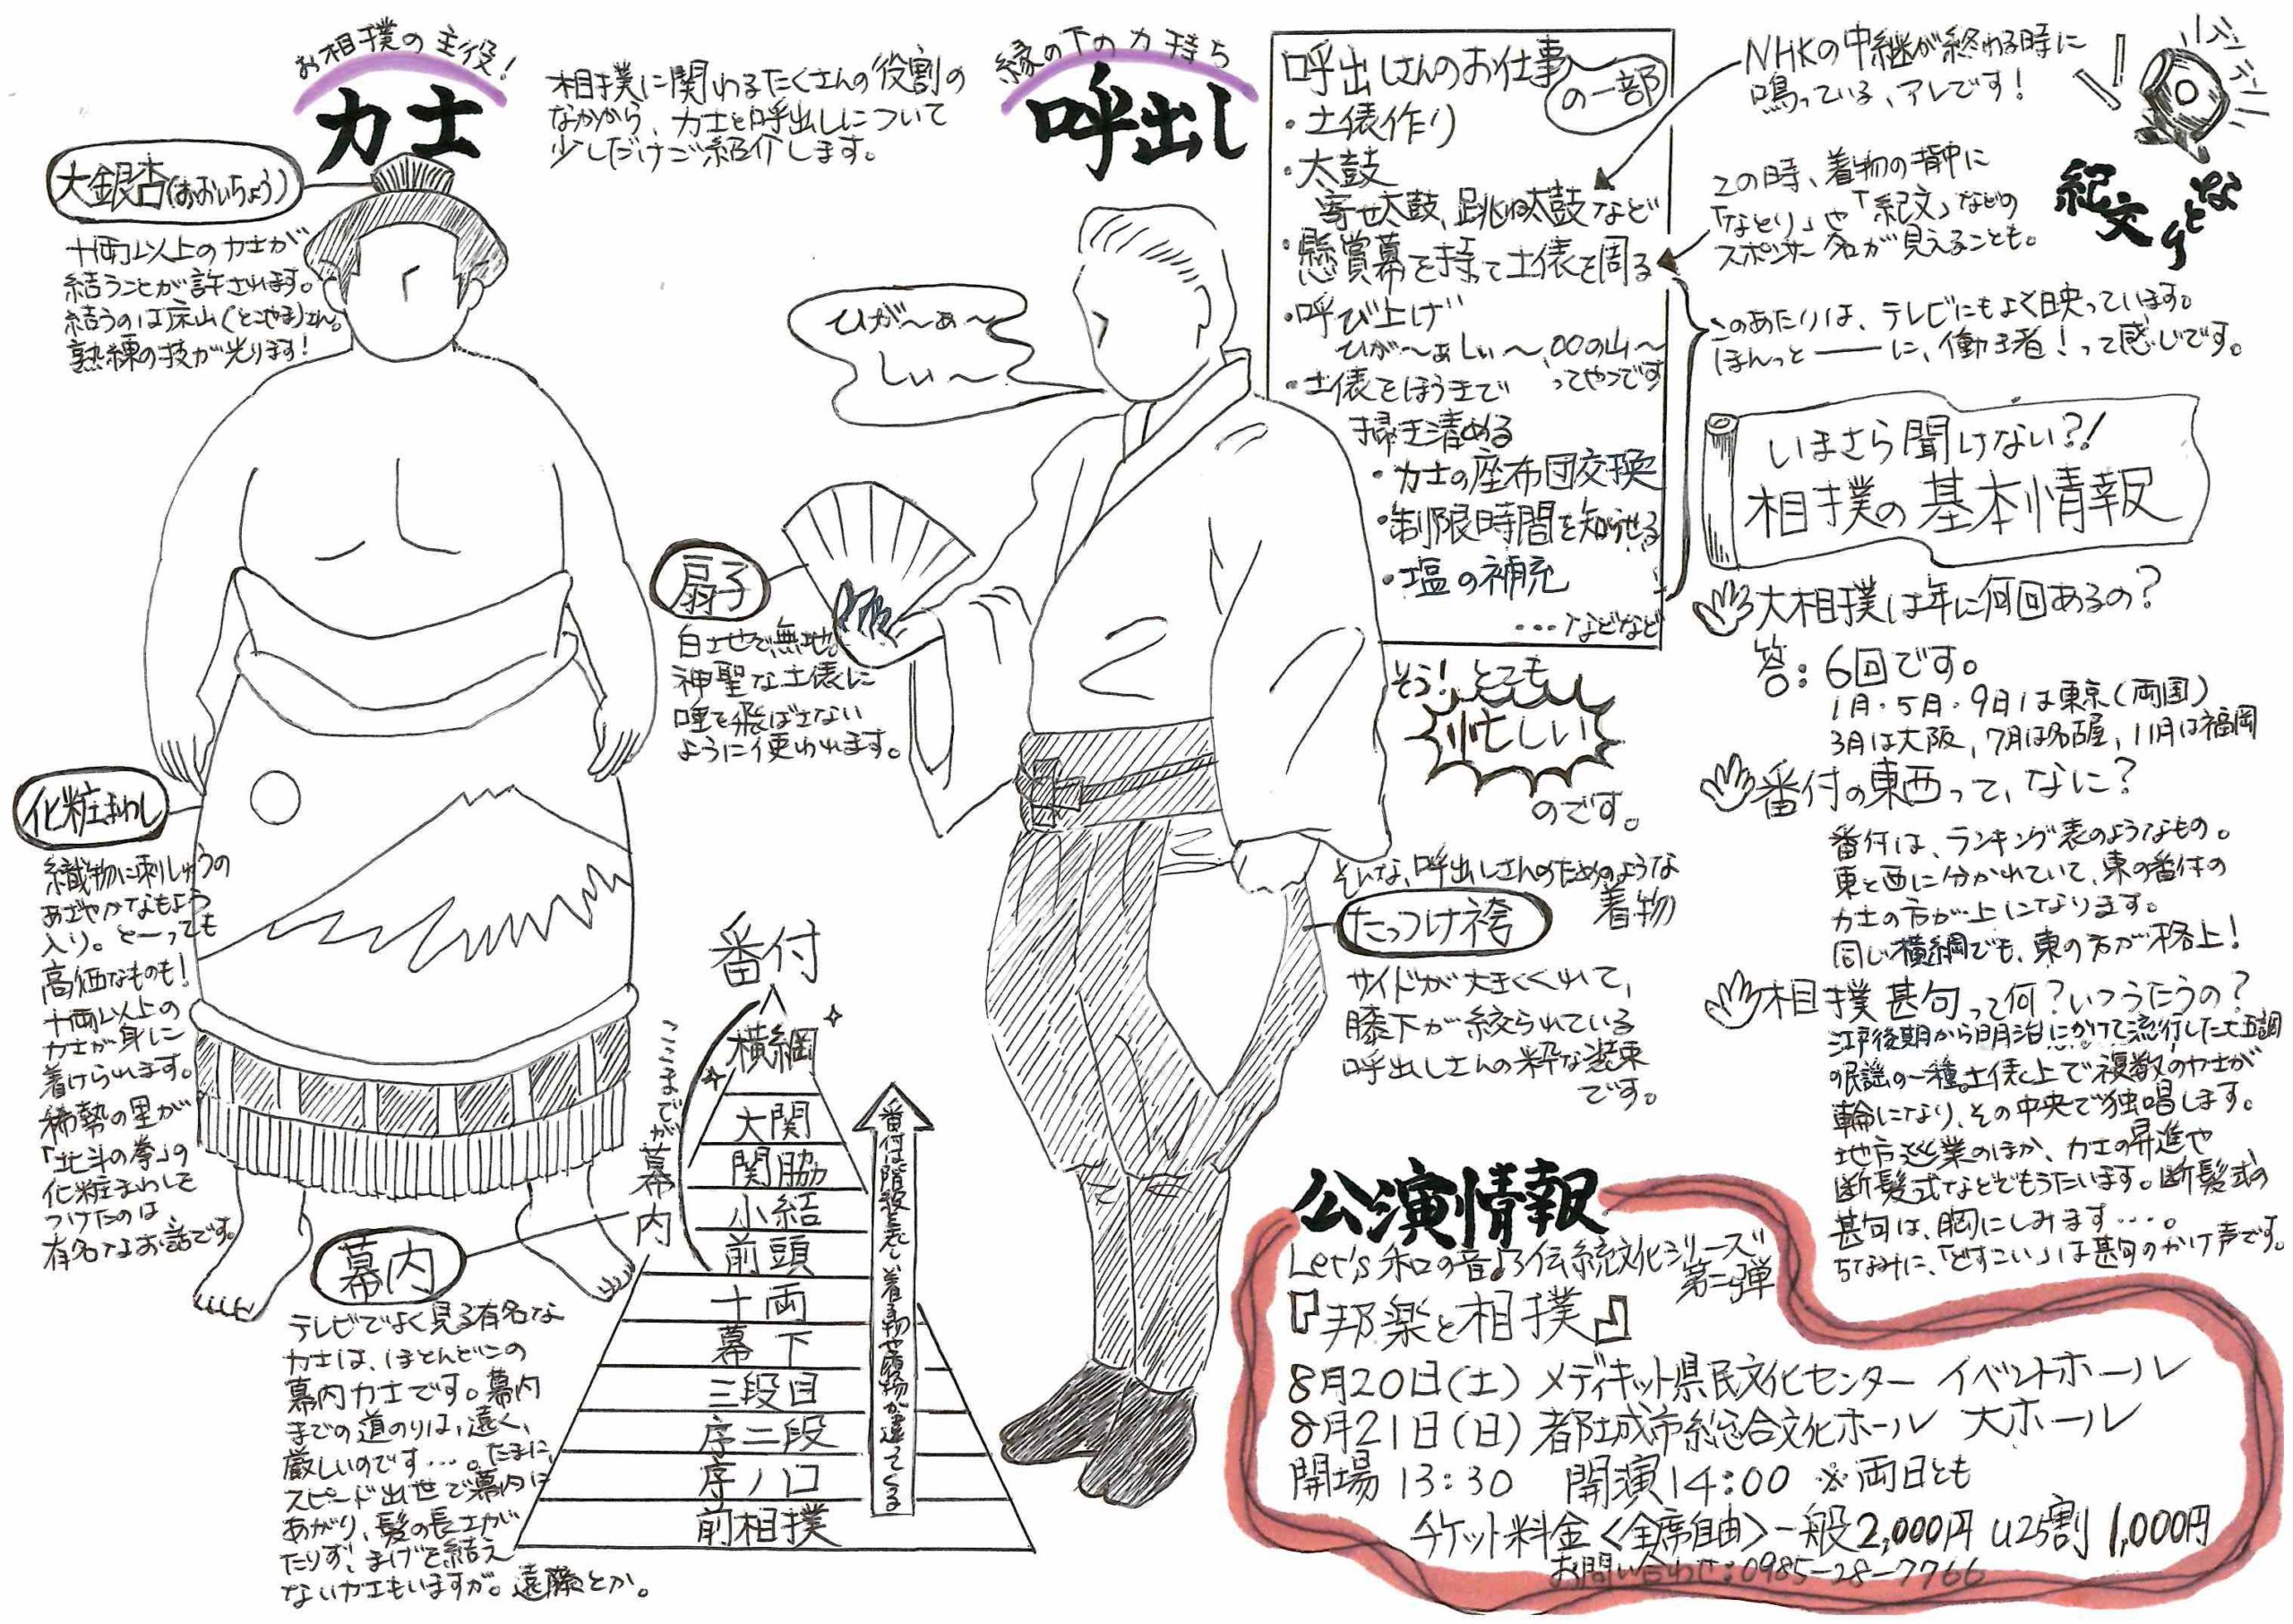 お相撲の主役!
力士
相撲に関わるたくさんの役割の
なかから、力士と呼出しについて
少しだけご紹介します。
大銀杏(おおいちょう)
十両以上の力士が
結うことが許されます。
結うのは床山(とこやま)さん。
熟練の技が光ります!
化粧まわし
織物に刺しゅうの
あざやかなもよう
入り。とーっても
高価なものも!
十両以上の
力士が身に
着けられます。
稀勢の里が
「北斗の拳」の
化粧まわしを
つけたのは
有名なお話です。
幕内
テレビでよく見る有名な
力士は、ほとんどこの
幕内力士です。幕内
までの道のりは、遠く、
厳しいのです…。たまに、
スピード出世で幕内に
あがり、髪の長さが
たりず、まげを結え
ない力士もいますが。遠藤とか。
番付
ここまでが幕内
横綱
大関
関脇
小結
前頭
十両
幕下
三段目
序二段
序ノ口
前相撲
番付は階級を表し、着る物や履物が違ってくる
縁の下の力持ち
呼出し
ひが〜ぁ〜
しぃ〜
扇子
白地で無地。
神聖な土俵に
唾を飛ばさない
ように使われます。
呼出しさんのお仕事
の一部
・土俵作り
・太鼓
寄せ太鼓、跳ね太鼓など
・懸賞幕を持って土俵を周る
・呼び上げ
ひが〜ぁしぃ〜、〇〇の山〜
ってやつです
・土俵をほうきで
掃き清める
・力士の座布団交換
・制限時間を知らせる
・塩の補充
…などなど
そう!とても
忙しい
のです。
そんな、呼出しさんのためのような
着物
たっつけ袴
サイドが大きくくれて、
膝下が絞られている
呼出しさんの粋な装束
です。
NHKの中継が終わる時に
鳴っている、アレです!
この時、着物の背中に
「なとり」や「紀文」などの
スポンサー名が見えることも。
紀文
なとり
このあたりは、テレビにもよく映っています。
ほんっと――に、働き者!って感じです。
いまさら聞けない?!
相撲の基本情報
大相撲は年に何回あるの?
答:6回です。
1月・5月・9月は東京(両国)
3月は大阪,7月は名古屋,11月は福岡
番付の東西って、なに?
番付は、ランキング表のようなもの。
東と西に分かれていて、東の番付の
力士の方が上になります。
同じ横綱でも、東の方が格上!
相撲甚句って何?いつうたうの?
江戸後期から明治にかけて流行した七五調
の民謡の一種。土俵上で複数の力士が
輪になり、その中央で独唱します。
地方巡業のほか、力士の昇進や
断髪式などでもうたいます。断髪式の
甚句は、胸にしみます…。
ちなみに、「どすこい」は甚句のかけ声です。
公演情報
Let's 和の音♪伝統文化シリーズ
第二弾
『邦楽と相撲』
8月20日(土) メディキット県民文化センター イベントホール
8月21日(日) 都城市総合文化ホール 大ホール
開場 13:30 開演14:00 ※両日とも
チケット料金〈全席自由〉一般2,000円 U25割 1,000円
お問い合わせ:0985-28-7766